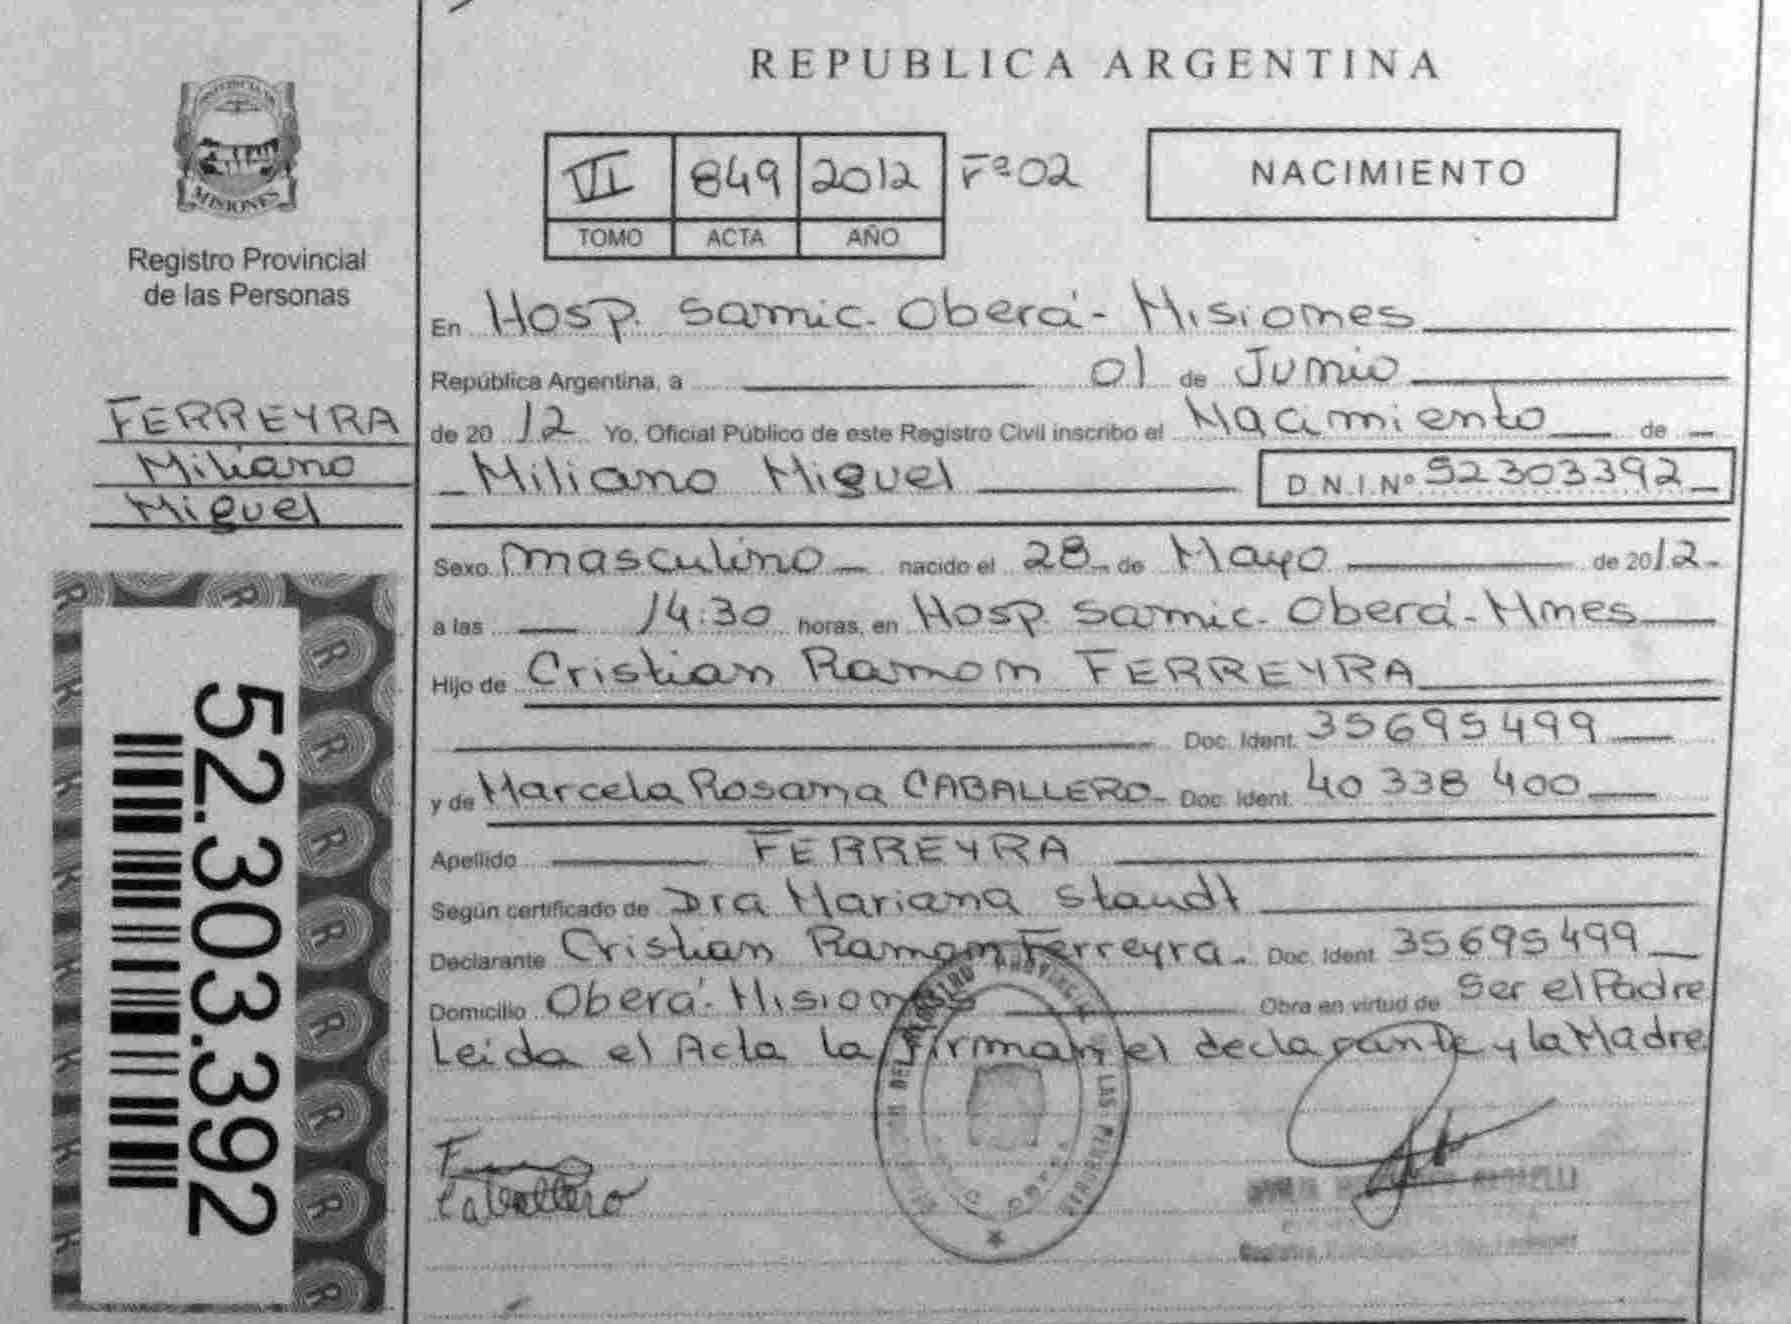 REPUBLICA ARGENTINA
MISIONES
Registro Provincial
de las Personas
VI 849 2012 Fº02
TOMO ACTA AÑO
NACIMIENTO
FERREYRA
Miliano
Miguel
52.303.392
En Hosp. Samic. Oberá - Misiones
República Argentina, a 01 de Junio
de 2012 Yo, Oficial Público de este Registro Civil inscribo el Nacimiento de
Miliano Miguel D.N.I.Nº 52303392
Sexo masculino nacido el 28 de Mayo de 2012
a las 14:30 horas, en Hosp. Samic. Oberá - Mnes
Hijo de Cristian Ramon FERREYRA
Doc. Ident. 35695499
y de Marcela Rosana CABALLERO Doc. Ident. 40 338 400
Apellido FERREYRA
Según certificado de Dra Mariana Staudt
Declarante Cristian Ramon Ferreyra. Doc. Ident. 35695499
Domicilio Oberá - Misiones Obra en virtud de Ser el Padre
Leida el Acta la firman el declarante y la Madre
Caballero